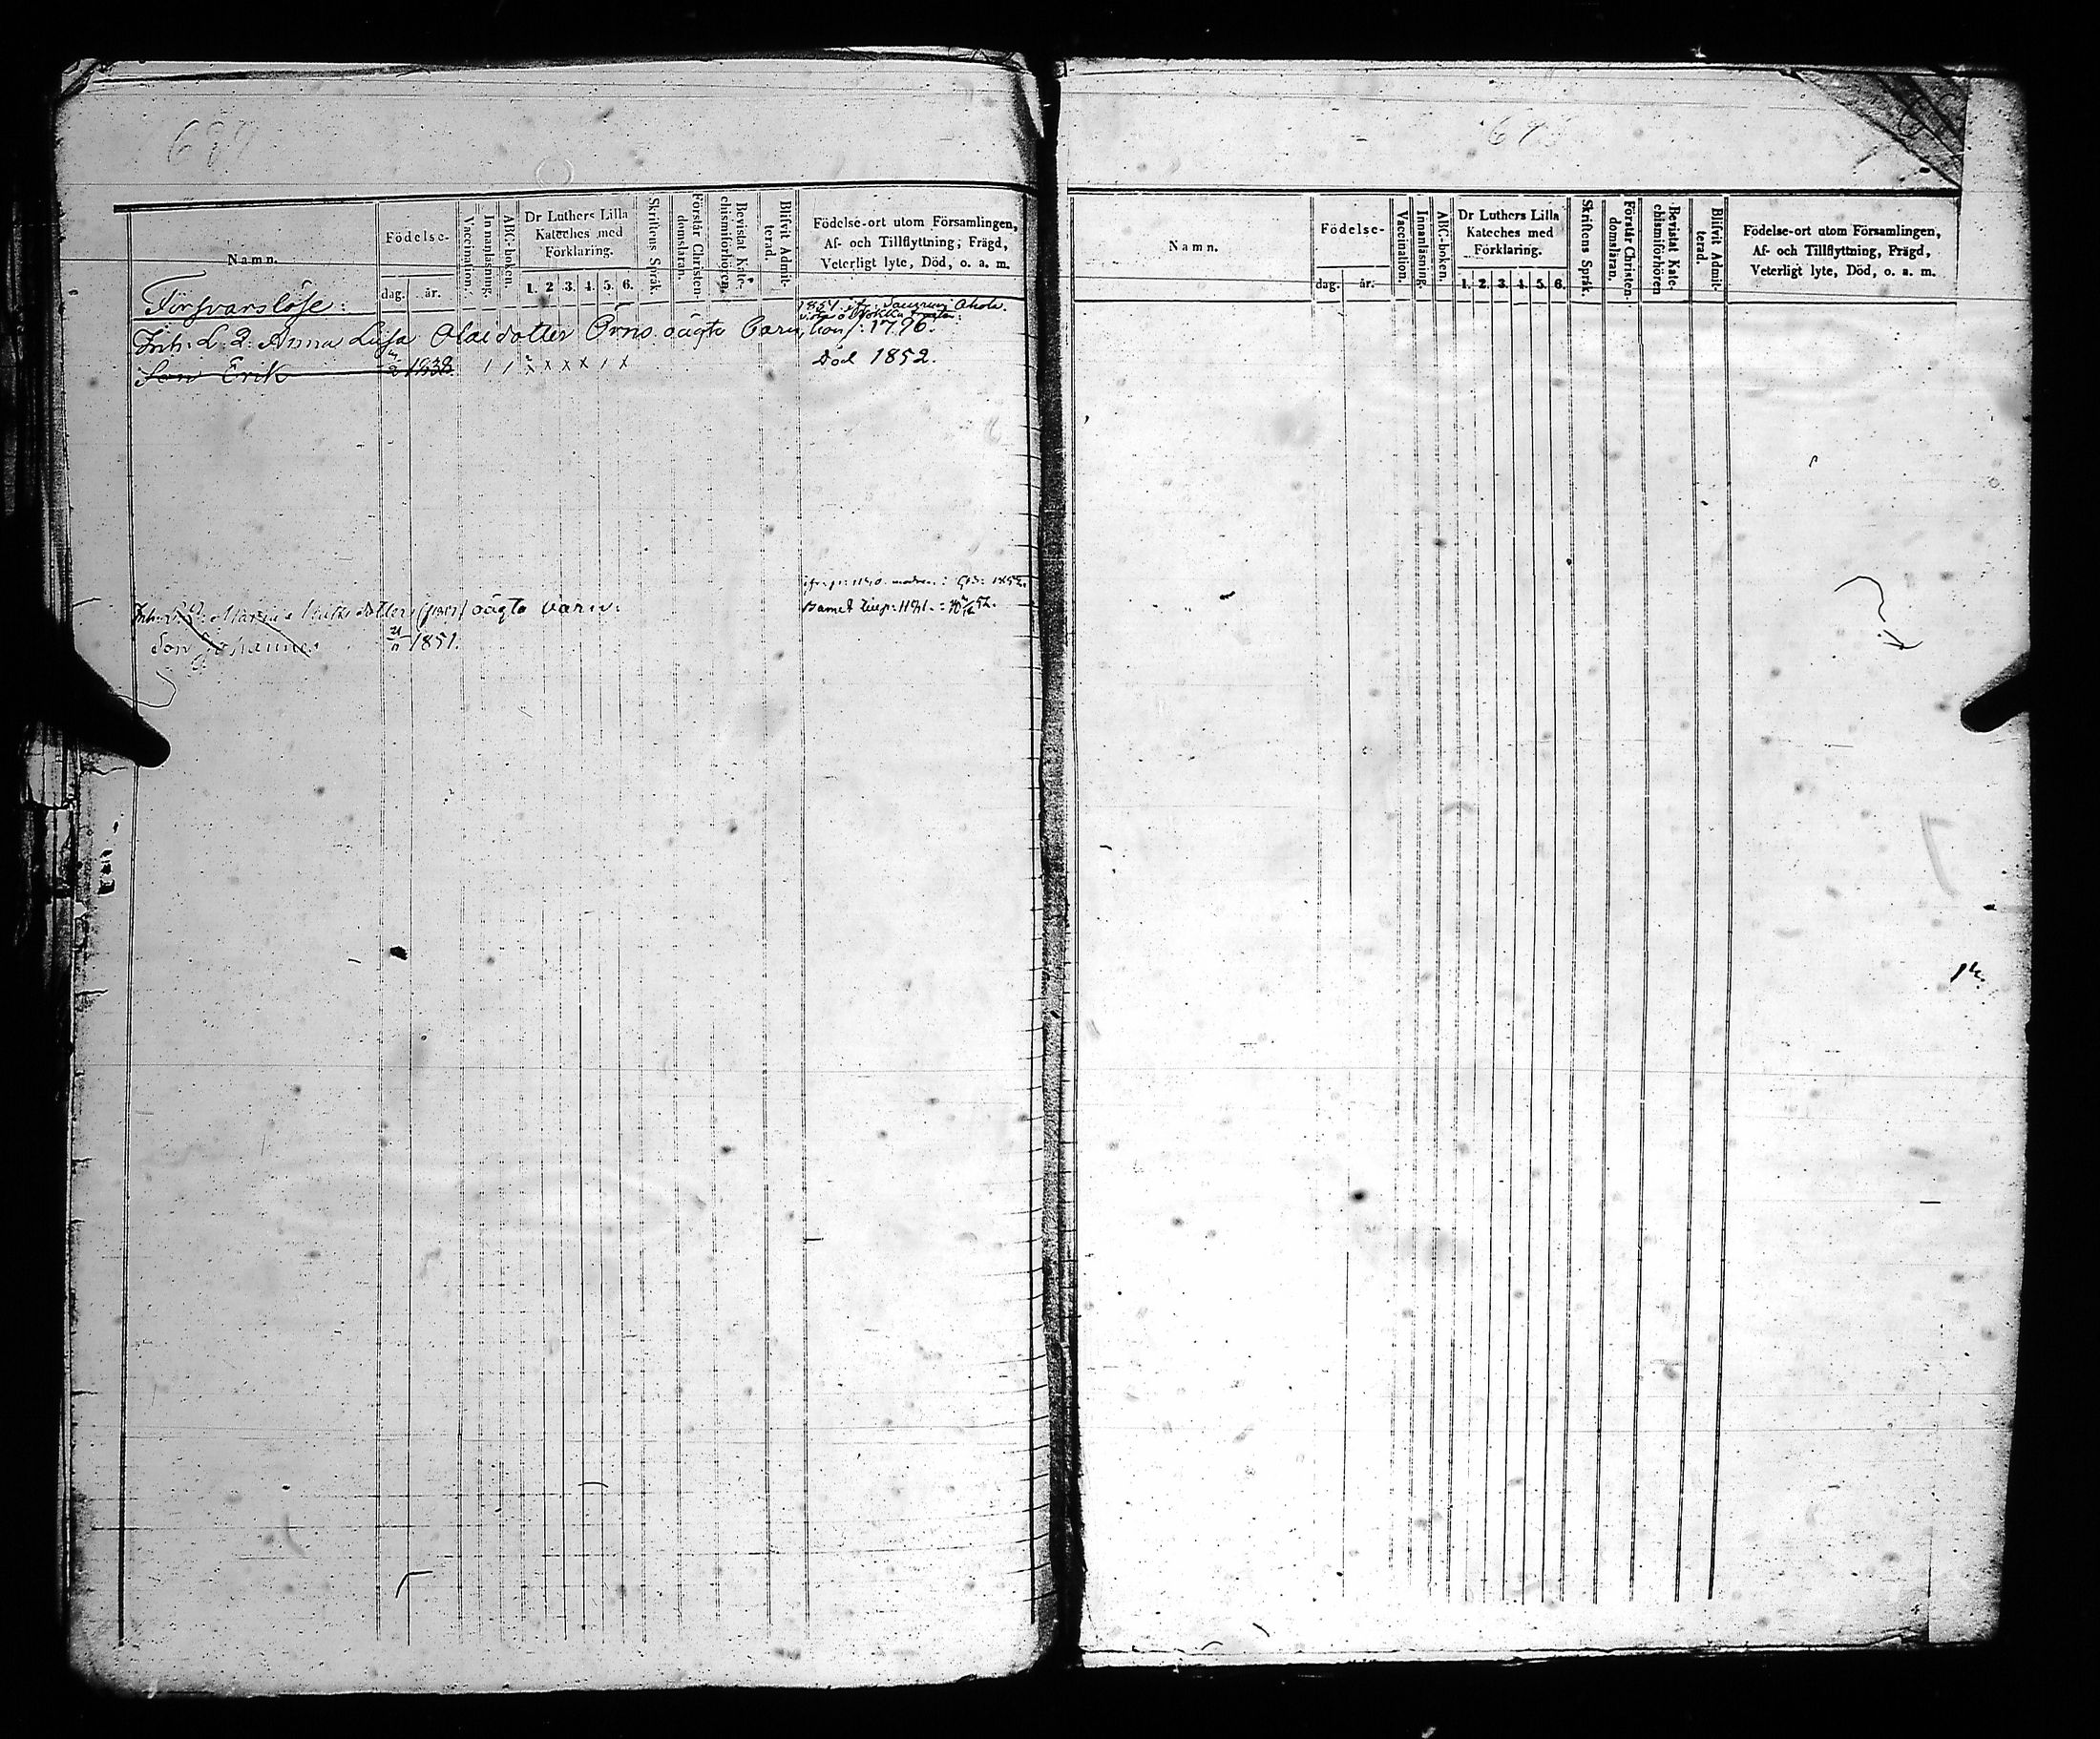 689
Namn.
Födelse-
dag. år.
Vaccination.
Innanläsning.
ABC-boken.
Dr Luthers Lilla
Kateches med
Förklaring.
1. 2 3. 4. 5. 6.
Skriftens Språk.
Förstår Christen-
domsläran.
Bevistat Kate-
chismiförhören.
Blifvit Admit-
terad.
Födelse-ort utom Församlingen,
Af- och Tillflyttning, Frägd,
Veterligt lyte, Död, o. a. m.
Försvarslöse:
1851
Inh: L: 2. Anna Lisa Olaidotter Örns oägta Barn, 1796.
Son Erik 1838 / / x x x x / x Död 1852.
1852.
dotter oägta barn: Barnet
Son Johannes 1851.
67
Namn.
Födelse-
dag. år.
Vaccination.
Innanläsning.
ABC-boken.
Dr Luthers Lilla
Kateches med
Förklaring.
1. 2. 3. 4. 5. 6.
Skriftens Språk.
Förstår Christen-
domsläran.
Bevistat Kate-
chismiförhören
Blifvit Admit-
terad.
Födelse-ort utom Församlingen,
Af- och Tillflyttning, Frägd,
Veterligt lyte, Död, o. a. m.